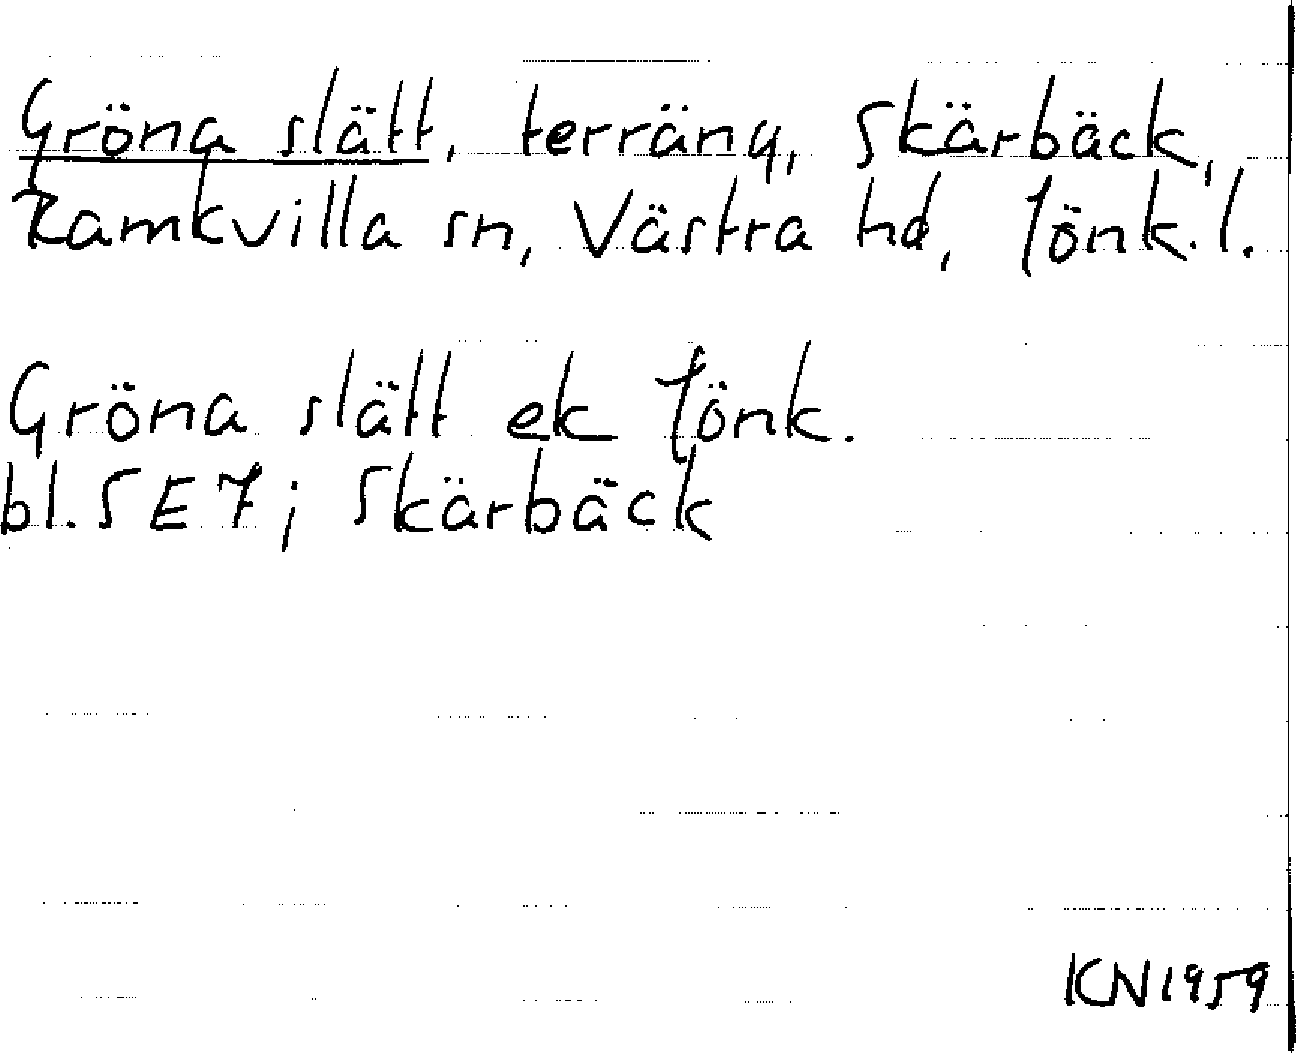 Gröna slätt, terräng, Skärbäck,
Ramkvilla sn, Västra hd, Jönk.l.
Gröna slätt ek Jönk.
bl. 5E7; Skärbäck
KN1959